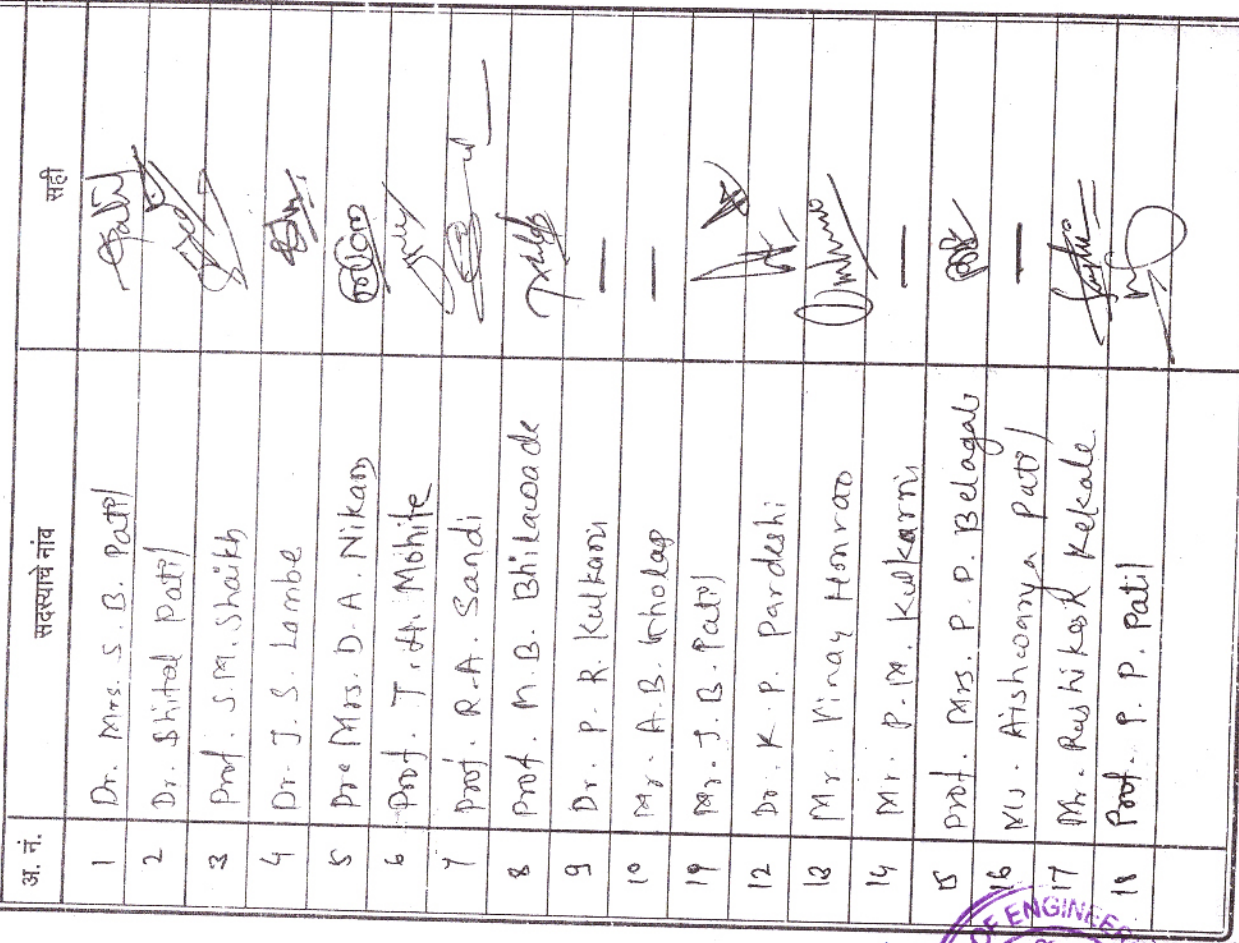 अ. नं. सदस्याचे नांव सही
1 Dr. Mrs. S. B. Patil Patil
2 Dr. Shital Patil
3 Prof. S.M. Shaikh
4 Dr. J. S. Lambe
5 Dr. Mrs. D. A. Nikam
6 Prof. T. H. Mohite
7 Prof. R. A. Sandi
8 Prof. M. B. Bhilawade
9 Dr. P. R. Kulkarni —
10 Mr. A. B. Gholap —
11 Mr. J. B. Patil
12 Dr. K. P. Pardeshi
13 Mr. Vinay Honrao
14 Mr. P. M. Kulkarni —
15 Prof. Mrs. P. P. Belagali
16 Ms. Aishwarya Patil —
17 Mr. Rushikesh Kekale
18 Prof. P. P. Patil
OF ENGINEER